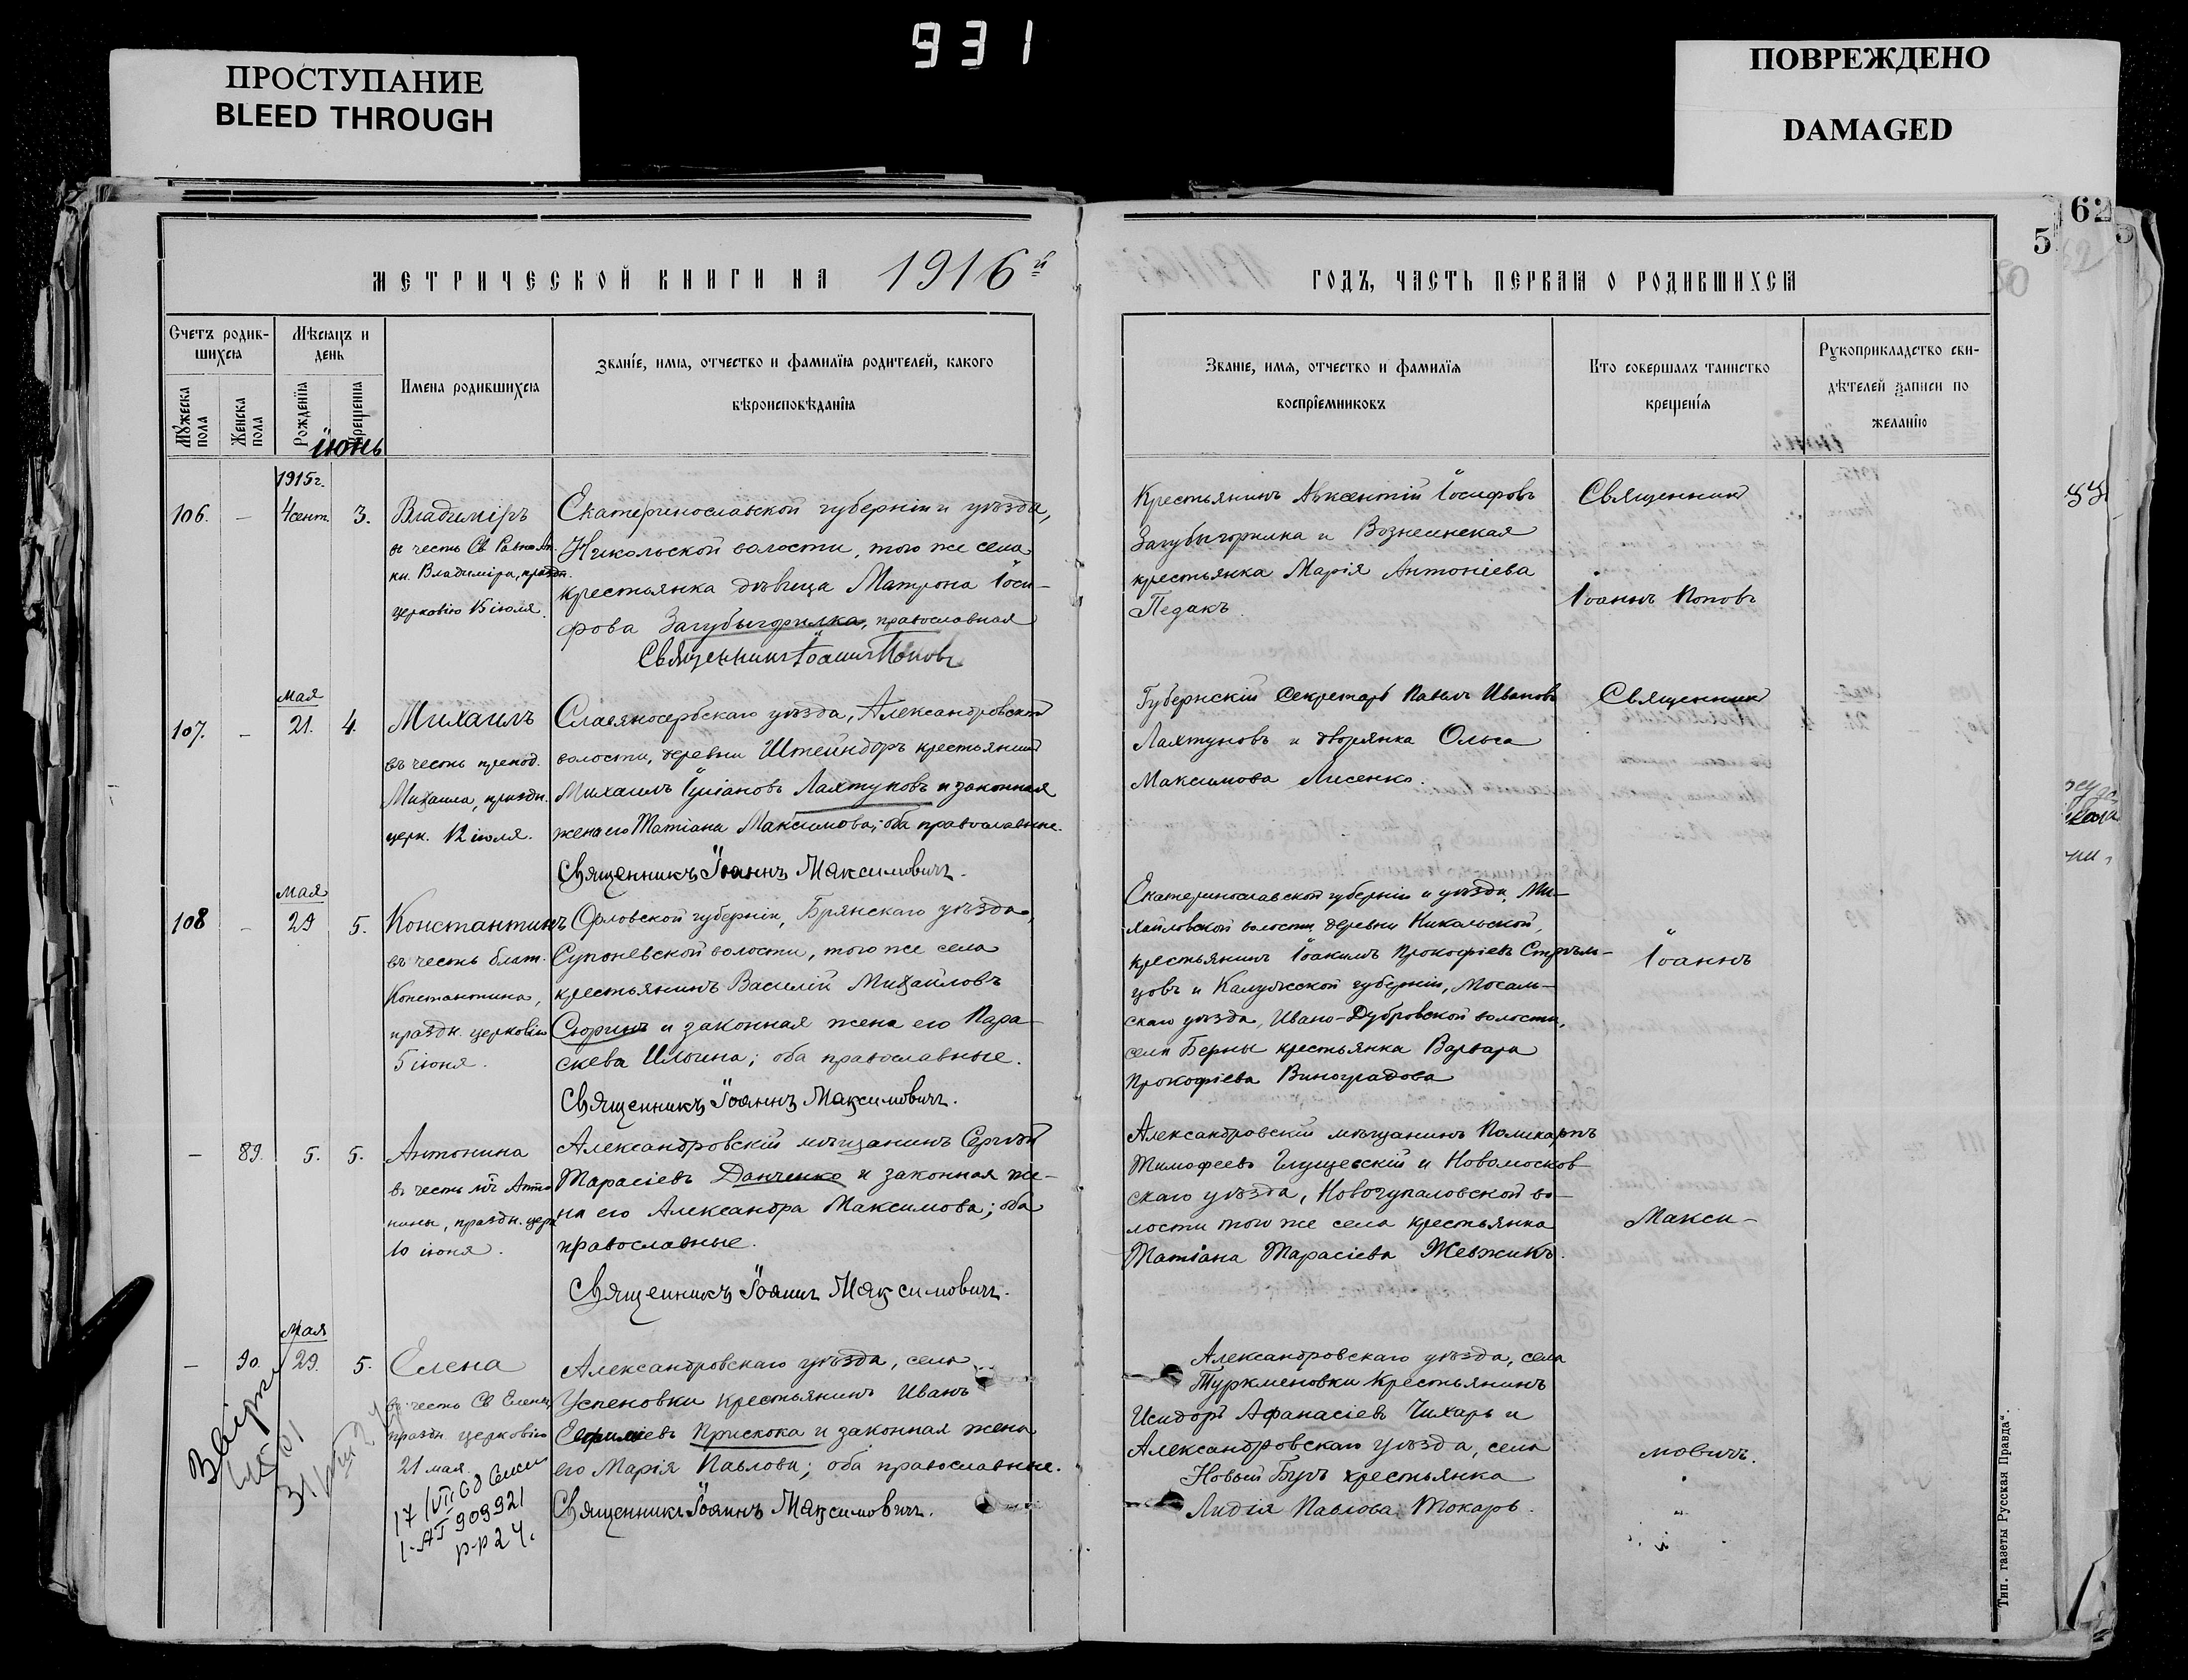 931
ПРОСТУПАНИЕ
BLEED THROUGH
ПОВРЕЖДЕНО
DAMAGED
62
5
МЕТРИЧЕСКОЙ КНИГИ НА 1916й
ГОДЪ, ЧАСТЬ ПЕРВАЯ О РОДИВШИХСЯ
Счетъ родив-
шихся
Мѣсяцъ и
день
Имена родившихся
Званіе, имя, отчество и фамилія родителей, какого
вѣроисповѣданія
Мужеска
пола
Женска
пола
Рожденія
Крещенія
Званіе, имя, отчество и фамилія
воспріемниковъ
Кто совершалъ таинство
крещенія
Рукоприкладство сви-
дѣтелей записи по
желанію
іюнь
1915г.
106. – 4 сент. 3. Владиміръ
въ честь Св Равноап.
кн. Владиміра, праздн.
церковію 15 іюля.
Екатеринославской губерніи и уѣзда,
Никольской волости, того же села
крестьянка дѣвица Матрона Іоси-
фова Загубыгорилка, православная
Священникъ Іоаннъ Поповъ
Крестьянинъ Авксентій Іосифовъ
Загубыгорилка и Вознесенская
крестьянка Марія Антоніева
Педакъ.
Священник
Іоаннъ Поповъ
мая
107. – 21. 4. Михаилъ
въ честь препод.
Михаила, праздн.
церк. 12 іюля.
Славяносербскаго уѣзда, Александровской
волости, деревни Штейндоръ крестьянин
Михаилъ Іуліановъ Лахтуновъ и законная
жена его Татіана Максимова; оба православные.
Священникъ Іоаннъ Максимовичъ.
Губернскій Секретарь Павелъ Ивановъ
Лахтуновъ и дворянка Ольга
Максимова Лисенко.
Священник
мая
108 – 29 5. Константинъ
въ честь благ.
Константина,
праздн. церковію
5 іюня.
Орловской губерніи, Брянскаго уѣзда,
Супоневской волости, того же села
крестьянинъ Василій Михайловъ
Сюринъ и законная жена его Пара-
скева Ильина; оба православные.
Священникъ Іоаннъ Максимовичъ.
Екатеринославской губерніи и уѣзда, Ми-
хайловской волости, деревни Никольской,
крестьянинъ Іоакимъ Прокофіевъ Стрѣль-
цовъ и Калужской губерніи, Мосаль-
скаго уѣзда, Ивано-Дубровской волости,
села Берны крестьянка Варвара
Прокофіева Виноградова
Іоаннъ
– 89. 5. 5. Антонина
въ честь мч Анто
нины, праздн. церк
10 іюня.
Александровскій мѣщанинъ Сергѣй
Тарасіевъ Данченко и законная же-
на его Александра Максимова; оба
православные.
Священникъ Іоаннъ Максимовичъ.
Александровскій мѣщанинъ Поликарпъ
Тимофеевъ Глущевскій и Новомосков-
скаго уѣзда, Новогупаловской во-
лости того же села крестьянка
Татіана Тарасіева Жевжикъ.
Макси-
мая
– 90. 29. 5. Елена
въ честь Св Елены
праздн церковію
21 мая.
Александровскаго уѣзда, села
Успеновки крестьянинъ Иванъ
Прискока и законная жена
его Марія Павлова; оба православные.
Священникъ Іоаннъ Максимовичъ.
Александровскаго уѣзда, села
Туркменовки крестьянинъ
Исидоръ Афанасіевъ Чихарь и
Александровскаго уѣзда, села
Новый Бугъ крестьянка
Лидія Павлова Токарь.
мовичъ.
17/VII
I-АТ 909921
р-р 24.
Тип. газеты Русская Правда“.